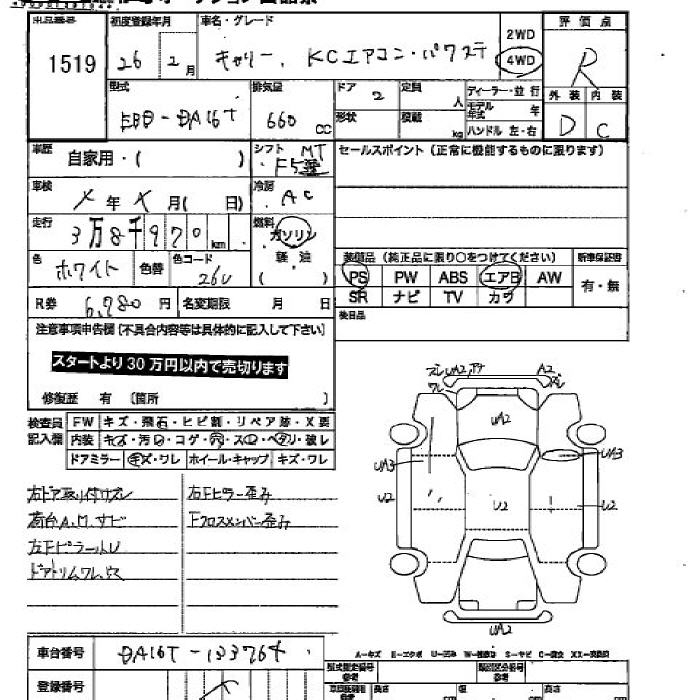 出品番号 初度登録年月 車名・グレード 評価点
1519 26年 2月 キャリー, KCエアコン・パワステ 2WD 4WD R
型式 EBD-DA16T 排気量 660 CC ドア 2 定員 人 ディーラー・並行 外装 内装
形状 積載 kg モデル年式 年 ハンドル 左・右 D C
車歴 自家用・( ) シフト MT F5 セールスポイント(正常に機能するものに限ります)
車検 X年X月( 日) 冷房 AC
走行 3万8千970km 燃料 ガソリン
軽油
( )
色 ホワイト 色替 色コード 26U
装備品(純正品に限り○をつけてください) 新車保証書
PS PW ABS エアB AW 有・無
SR ナビ TV カワ
R券 6,980円 名変期限 月 日 後日品
注意事項申告欄[不具合内容等は具体的に記入して下さい]
スタートより30万円以内で売切ります
修復歴 有 [箇所 ]
検査員記入欄 FW キズ・飛石・ヒビ割・リペア跡・X要
内装 キズ・汚・コゲ・穴・ス・ヘタリ・破レ
ドアミラー キズ・ワレ ホイール・キャップ キズ・ワレ
右ドア取り付ケズレ 右Fピラー歪み
荷台A.M.サビ Fクロスメンバー歪み
左Fピラー凹U
ドアトリムワレ、穴
ズレ UA2,アナ A2
ワレ
UA2
UA3 UA3
U2 U2 U2
UA2
A-キズ E-エクボ U-凹み W-補修跡 S-サビ C-腐食 XX-交換済
車台番号 DA16T-133764
登録番号
型式指定番号 類別区分番号
長さ 幅 高さ
cm cm